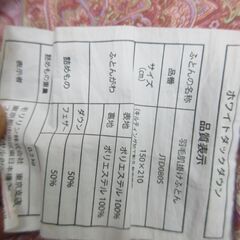 ホワイトダックダウン
品質表示
ふとんの名称 羽毛肌掛けふとん
品番 JTD080S
サイズ(cm) 150×210
ふとんがわ 表地 ポリエステル 100%
裏地 ポリエステル 100%
詰めもの ダウン 50%
フェザー 50%
詰めもの重量
表示者 東京支店